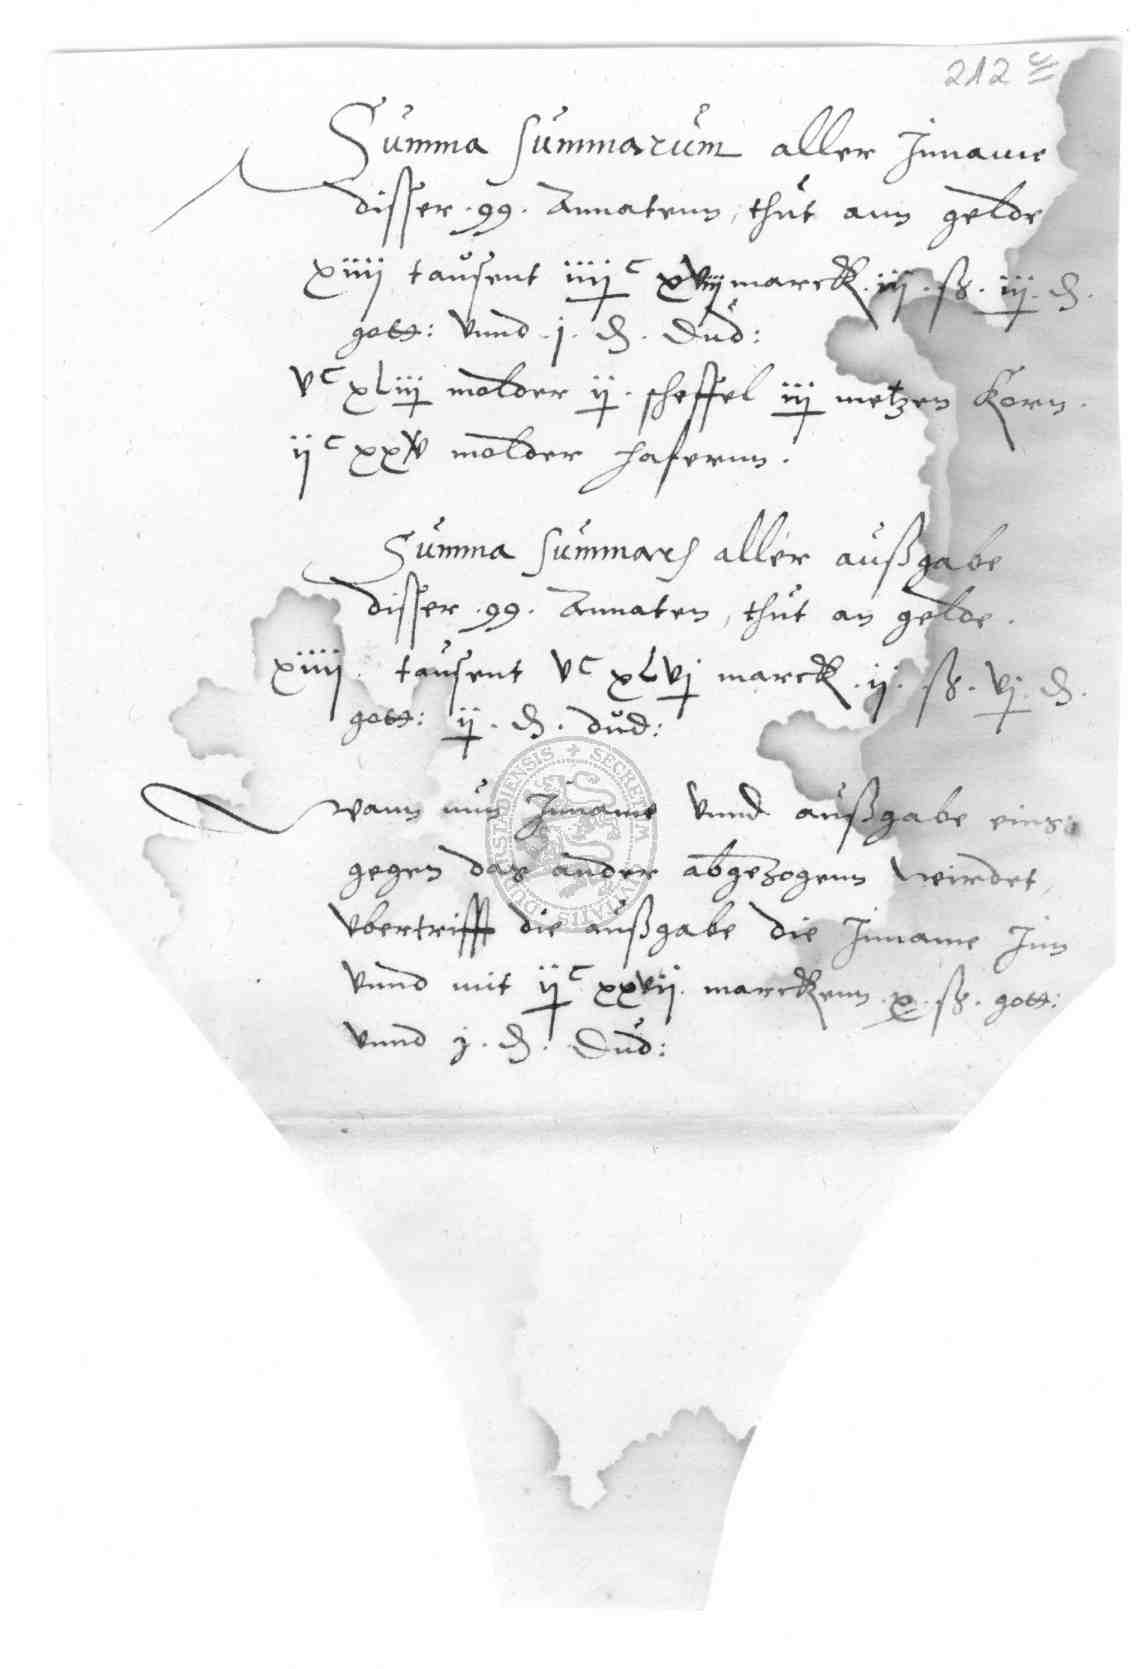 212 c
Summa Summarum aller Inname
disser .99. Annatenn, thut ann gelde
xiiij tausent iiijᶜ xviij marck .iij. ß. iij. ₰.
gott: vnnd .j. ₰. Dud:
vᶜ xLiij molder ij. scheffel iij metzen Korn.
ijᶜ xxv molder hafernn.
Summa Summarum aller außgabe
disser .99. Annaten, thut an gelde.
xiiij. tausent vᶜ xLvj marck .ij. ß. vj. ₰.
gott: ij. ₰. dud:
wann nun Inname vnnd außgabe eins
gegen das ander abgezogenn wirdet,
vbertrifft die außgabe die Inname Inn
vnnd mit ijᶜ xxvij. marckenn .x. ß. gott:
vnnd j. ₰. Dud:
SECRETUM CIVITATIS DUDERSTADIENSIS